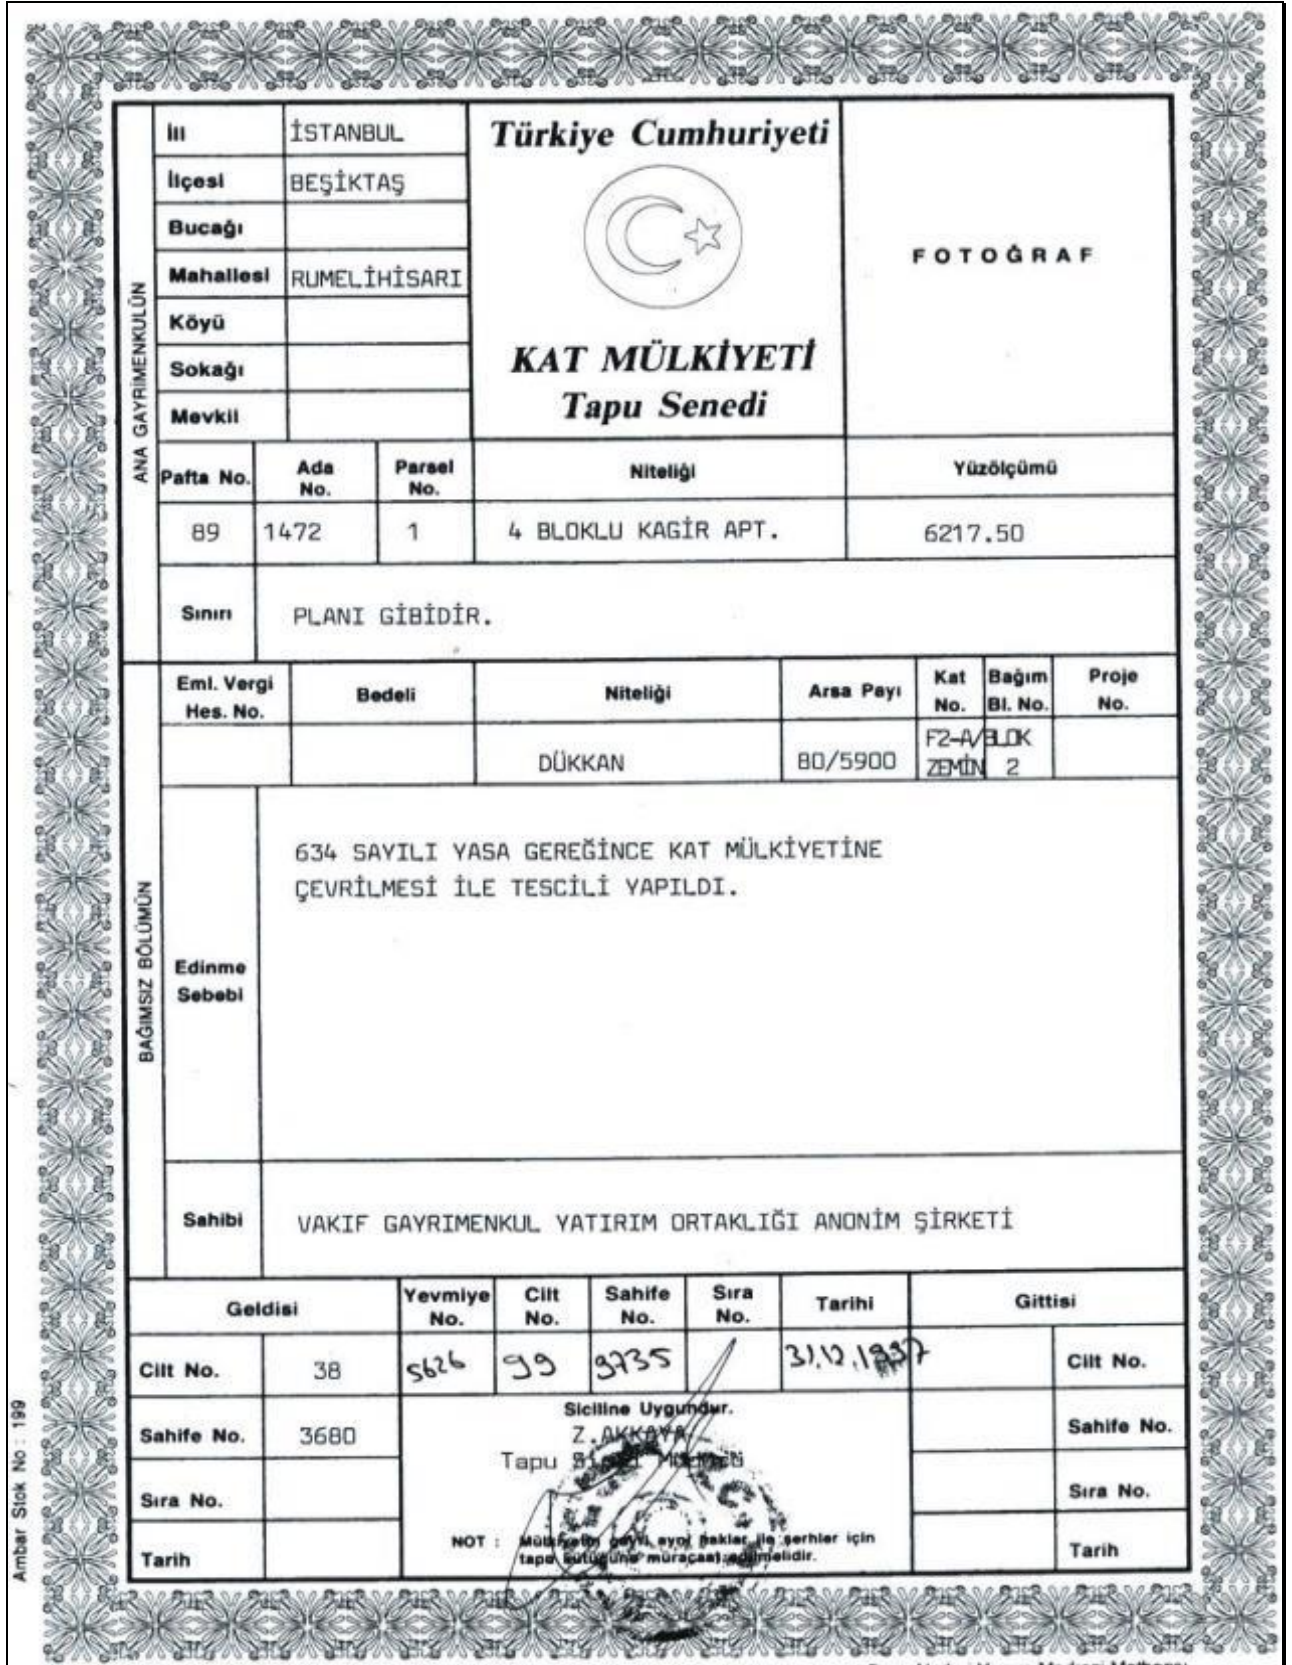 ANA GAYRİMENKULÜN
İli İSTANBUL
İlçesi BEŞİKTAŞ
Bucağı
Mahallesi RUMELİHİSARI
Köyü
Sokağı
Mevkii
Türkiye Cumhuriyeti
KAT MÜLKİYETİ
Tapu Senedi
FOTOĞRAF
Pafta No. Ada No. Parsel No. Niteliği Yüzölçümü
89 1472 1 4 BLOKLU KAGİR APT. 6217.50
Sınırı PLANI GİBİDİR.
BAĞIMSIZ BÖLÜMÜN
Eml. Vergi Hes. No. Bedeli Niteliği Arsa Payı Kat No. Bağım Bl. No. Proje No.
F2-A/BLOK
DÜKKAN 80/5900 ZEMİN 2
Edinme Sebebi
634 SAYILI YASA GEREĞİNCE KAT MÜLKİYETİNE
ÇEVRİLMESİ İLE TESCİLİ YAPILDI.
Sahibi VAKIF GAYRIMENKUL YATIRIM ORTAKLIĞI ANONİM ŞİRKETİ
Geldisi Yevmiye No. Cilt No. Sahife No. Sıra No. Tarihi Gittisi
Cilt No. 38 5626 99 9735 31.12.1997 Cilt No.
Siciline Uygundur.
Sahife No. 3680 Z.AKKAYA Sahife No.
Tapu Müdürü
Sıra No. Sıra No.
NOT : Mülkiyetin gayri ayni haklar ile şerhler için
tapu kütüğüne müracaat edilmelidir.
Tarih Tarih
Ambar Stok No : 199